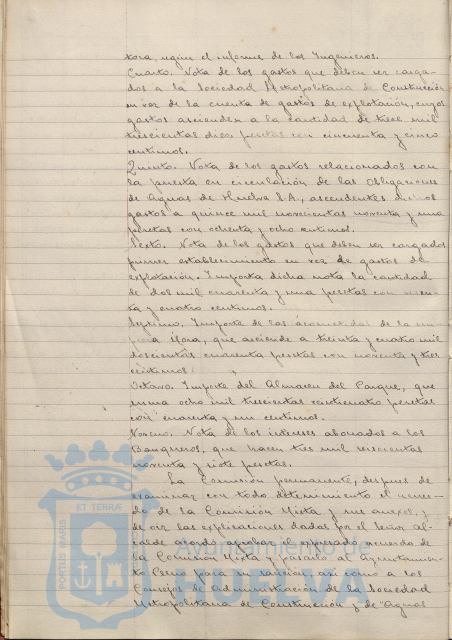 tora, según el informe de los Ingenieros.
Cuarto. Nota de los gastos que deben ser carga-
dos a la Sociedad Metropolitana de Construcción
en vez de la cuenta de gastos de explotación, cuyos
gastos ascienden a la cantidad de trece mil
trescientas diez pesetas con cincuenta y cinco
centimos.
Quinto. Nota de los gastos relacionados con
la puesta en circulación de las Obligaciones
de Aguas de Huelva S.A., ascendentes dichos
gastos a quince mil novecientas noventa y una
pesetas con ochenta y ocho centimos.
Sexto. Nota de los gastos que deben ser cargados
primer establecimiento en vez de gastos de
explotación. Importa dicha nota la cantidad
de dos mil cuarenta y una pesetas con
ta y cuatro centimos.
Septimo. Importe de las acometidas de la
que asciende a treinta y cuatro mil
doscientas cuarenta pesetas con noventa y tres
centimos
Octavo. Importe del Almacen del Parque, que
suma ocho mil trescientas veinticuatro pesetas
con cuarenta y un centimos.
Noveno. Nota de los intereses abonados a los
Banqueros, que hacen tres mil seiscientas
noventa y siete pesetas.
La Comisión permanente, despues de
examinar con todo detenimiento el acuer-
do de la Comisión Mixta y sus anexos, y
de oir las explicaciones dadas por el Señor Al-
calde acordó aprobar el expresado acuerdo de
la Comisión Mixta y pasarlo al Ayuntamien-
to Pleno para su sanción, así como a los
Consejos de Administración de la Sociedad
Metropolitana de Construcción y de "Aguas
PORTUS MARIS ET TERRAE
Ayuntamiento de
HUELVA